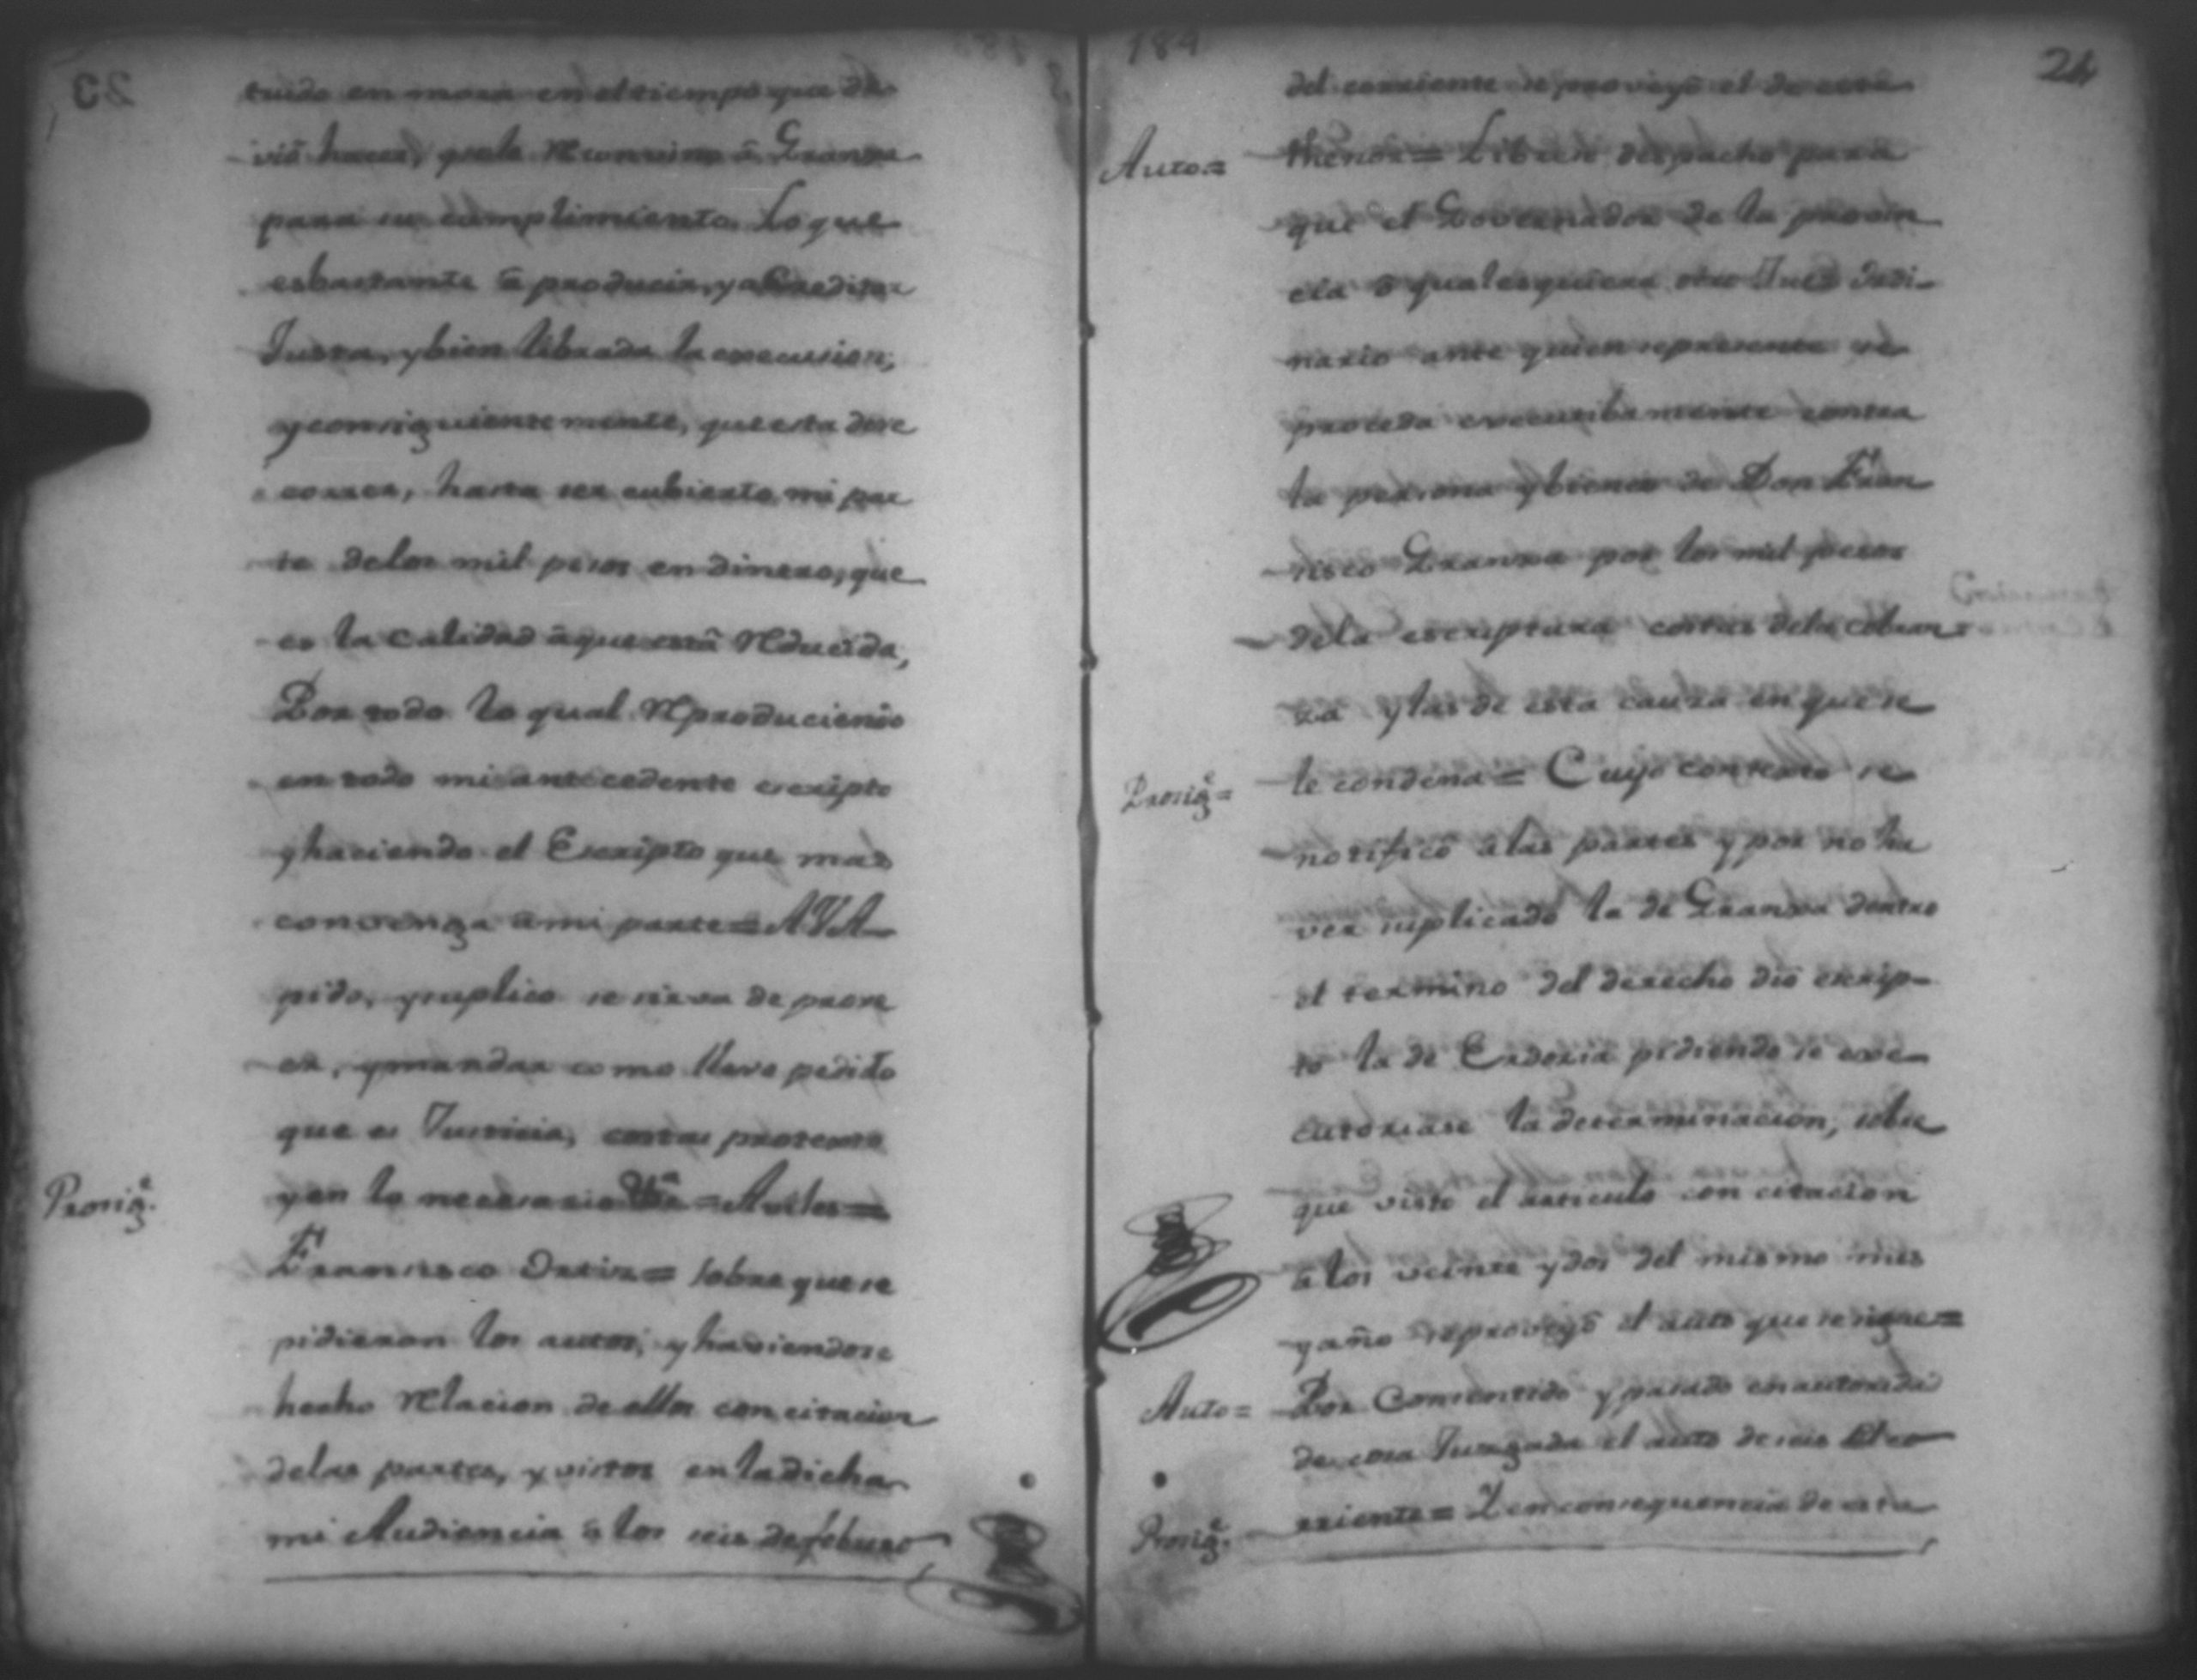 23
tuido en mora en el tiempo que de
via hacer, que le reconvino â Granxa
para su cumplimiento. Lo que
es bastante â producir, y acreditar
Justa, y bien librada la execucion,
y consiguientemente, que esta deve
correr, hasta ser cubierto mi par
te delos mil pesos en dinero, que
es la calidad â que està reducida,
Por todo lo qual reproduciendo
en todo mi antecedente escripto
y haciendo el Escripto que mas
convenga â mi parte = AVA
pido, y suplico se sirva de prove
er, y mandar como llevo pedido
que es Justicia, costas protexto
Prosigᵉ.
y en lo necesario = Aviles =
Francisco Ortiz = sobre que se
pidieron los autos, y haviendose
hecho relacion de ellos con citacion
delas partes, y vistos en la dicha
mi Audiencia â los seis de febrero
184
24
del corriente se proveyô el de este
Auto =
thenor = Librese despacho para
que el Governador de la provin
cia ô qualesquiera otro Juez Ordi-
nario ante quien se presente se
proceda executibamente contra
la persona y bienes de Don Fran
cisco Granxa por los mil pesos
dela escriptura costas dela cobran
za y las de esta causa en que se
Prosigᵉ =
le condena = Cuyo contexto se
notificô a las partes y por no ha
ver suplicado la de Granxa dentro
el termino del derecho diô escrip-
to la de Erdoxia pidiendo se exe
cutoriase la determinacion, sobre
que visto el articulo con citacion
â los veinte y dos del mismo mes
y año se proveyô el auto que se sigue =
Auto =
Por Consentido y pasado en autoridad
de cosa Juzgada el auto de seis del co
Prosigᵉ.
rriente = Y en consequencia de esta